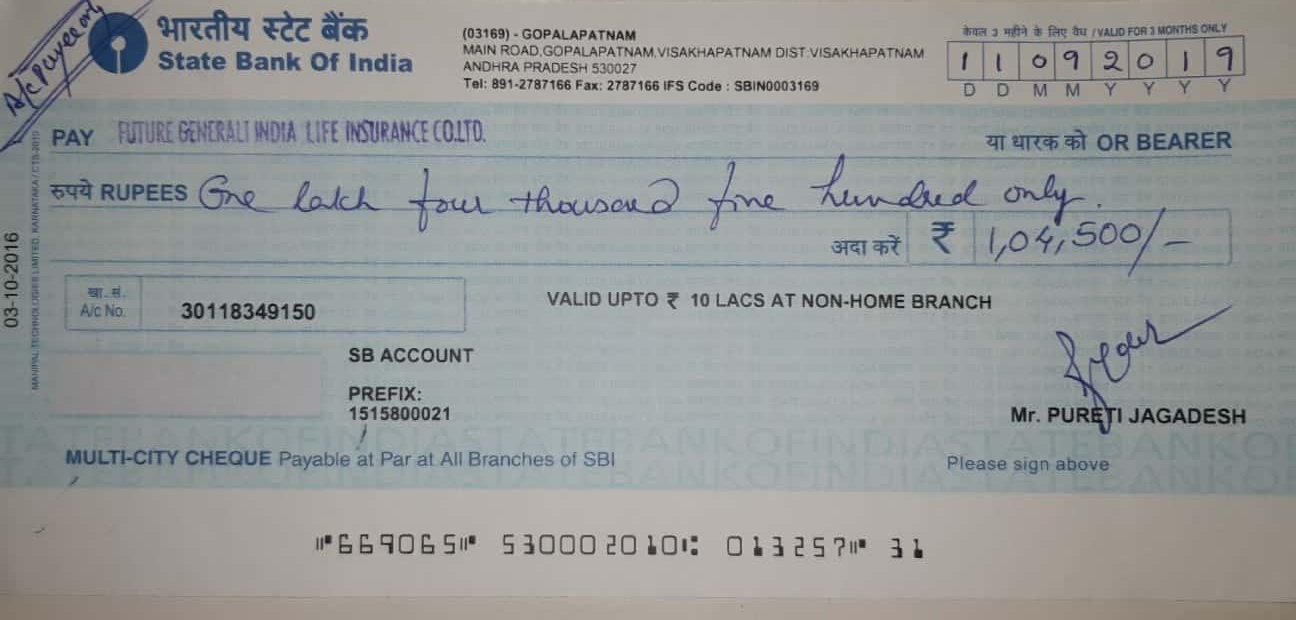 A/c Payee only
भारतीय स्टेट बैंक
State Bank Of India
(03169) - GOPALAPATNAM
MAIN ROAD,GOPALAPATNAM,VISAKHAPATNAM DIST:VISAKHAPATNAM
ANDHRA PRADESH 530027
Tel: 891-2787166 Fax: 2787166 IFS Code : SBIN0003169
केवल 3 महीने के लिए वैध / VALID FOR 3 MONTHS ONLY
1 1 0 9 2 0 1 9
D D M M Y Y Y Y
PAY FUTURE GENERALI INDIA LIFE INSURANCE CO.LTD.
या धारक को OR BEARER
रुपये RUPEES One lakh four thousand five hundred only.
अदा करें ₹ 1,04,500/-
खा. सं.
A/c No. 30118349150
VALID UPTO ₹ 10 LACS AT NON-HOME BRANCH
SB ACCOUNT
PREFIX:
1515800021
Mr. PURETI JAGADESH
MULTI-CITY CHEQUE Payable at Par at All Branches of SBI
Please sign above
⑈669065⑈ 530002010⑆ 013257⑈ 31
03-10-2016
MANIPAL TECHNOLOGIES LIMITED, KARNATAKA / CTS-2010